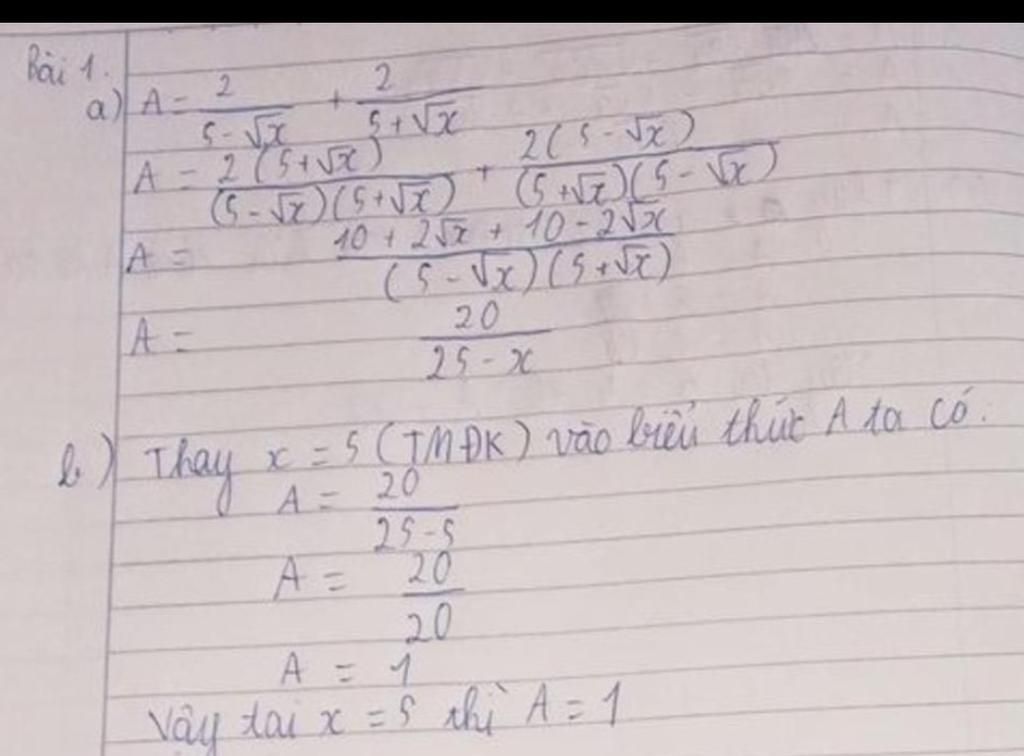 Bài 1.
a) A = 2/(5-√x) + 2/(5+√x)
A = 2(5+√x)/((5-√x)(5+√x)) + 2(5-√x)/((5+√x)(5-√x))
A = (10+2√x+10-2√x)/((5-√x)(5+√x))
A = 20/(25-x)
b) Thay x = 5 (TMĐK) vào biểu thức A ta có.
A = 20/(25-5)
A = 20/20
A = 1
Vậy tai x = 5 thì A = 1